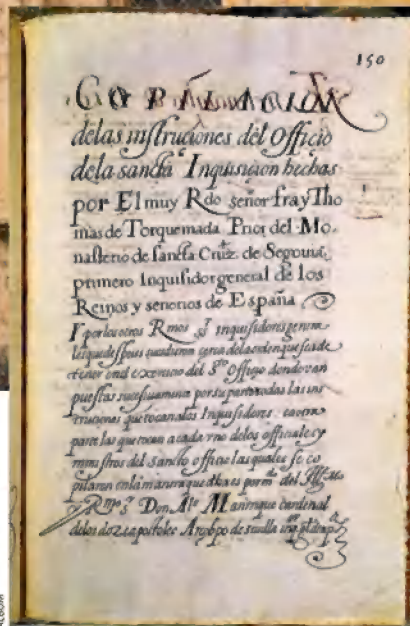 150
COPILACION
delas instruciones del Officio
dela sancta Inquisicion hechas
por El muy Rdo señor fray Tho
mas de Torquemada Prior del Mo.
nasterio de sancta Cruz de Segouia,
primero Inquisidor general de los
Reinos y senorios de España
Y por los otros Rmos Sres Inquisidores genera
les que despues cerca dela orden que se ade
tener enel exercicio del Sto Officio donde van
puestas successiuamente por su parte todas las ins
truciones que tocan alos Inquisidores e a otra
parte las que tocan a cada vno delos officiales y
ministros del Sancto officio las quales se co
pilaron enla manera que dha es por mdo del Illmo
y Rmo Sr Don Alo Manrrique Cardenal
delos doze apostoles Arçobpo de seuilla
ALBUM